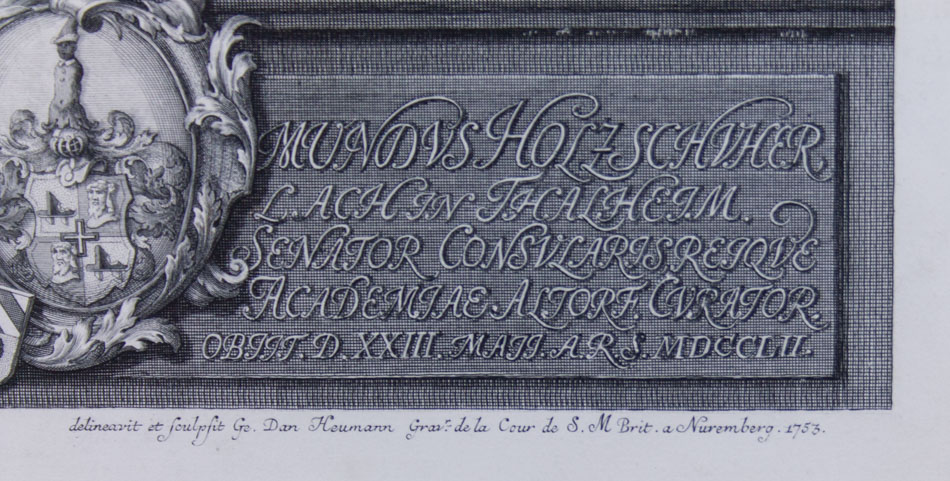 MUNDVS HOLZSCHVHER,
L. ACH IN THALHEIM.
SENATOR CONSVLARIS REIQVE
ACADEMIAE. ALTORF. CVRATOR.
OBIIT. D. XXIII. MAII. A. R. S. MDCCLII.
delineavit et sculpsit Ge. Dan Heumann Grav.r de la Cour de S. M Brit. a Nuremberg. 1753.